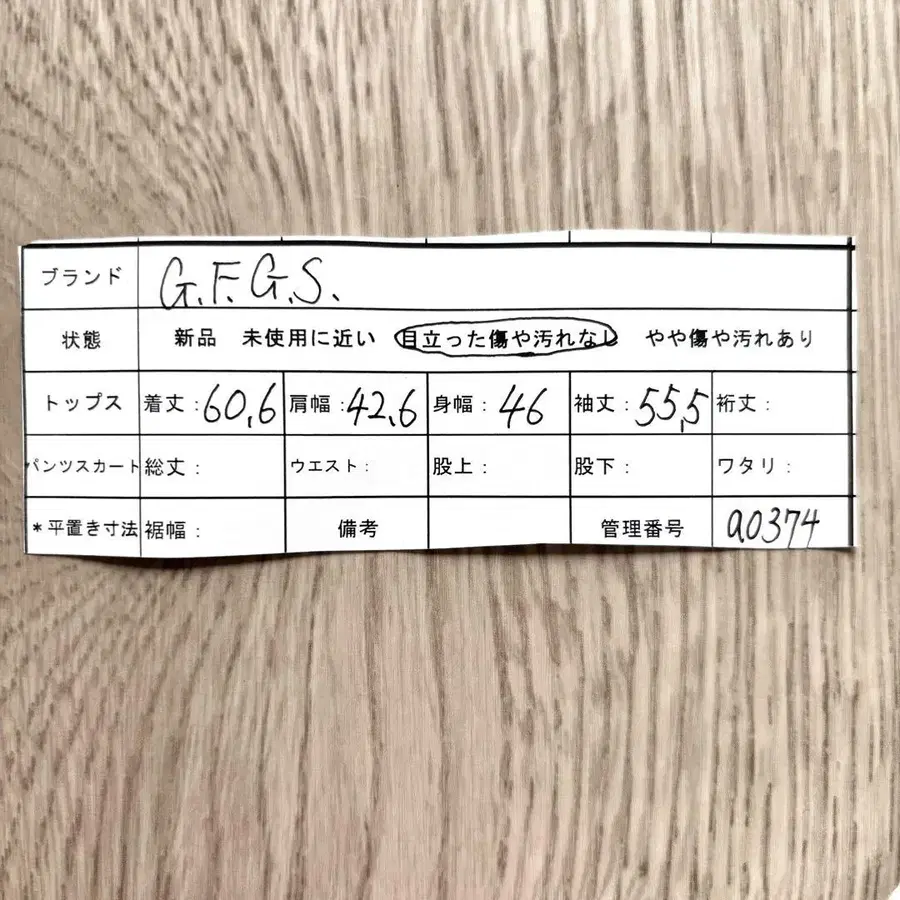 ブランド G.F.G.S.
状態 新品 未使用に近い 目立った傷や汚れなし やや傷や汚れあり
トップス 着丈：60,6 肩幅：42,6 身幅：46 袖丈：55,5 裄丈：
パンツスカート 総丈： ウエスト： 股上： 股下： ワタリ：
＊平置き寸法 裾幅： 備考 管理番号 a0374